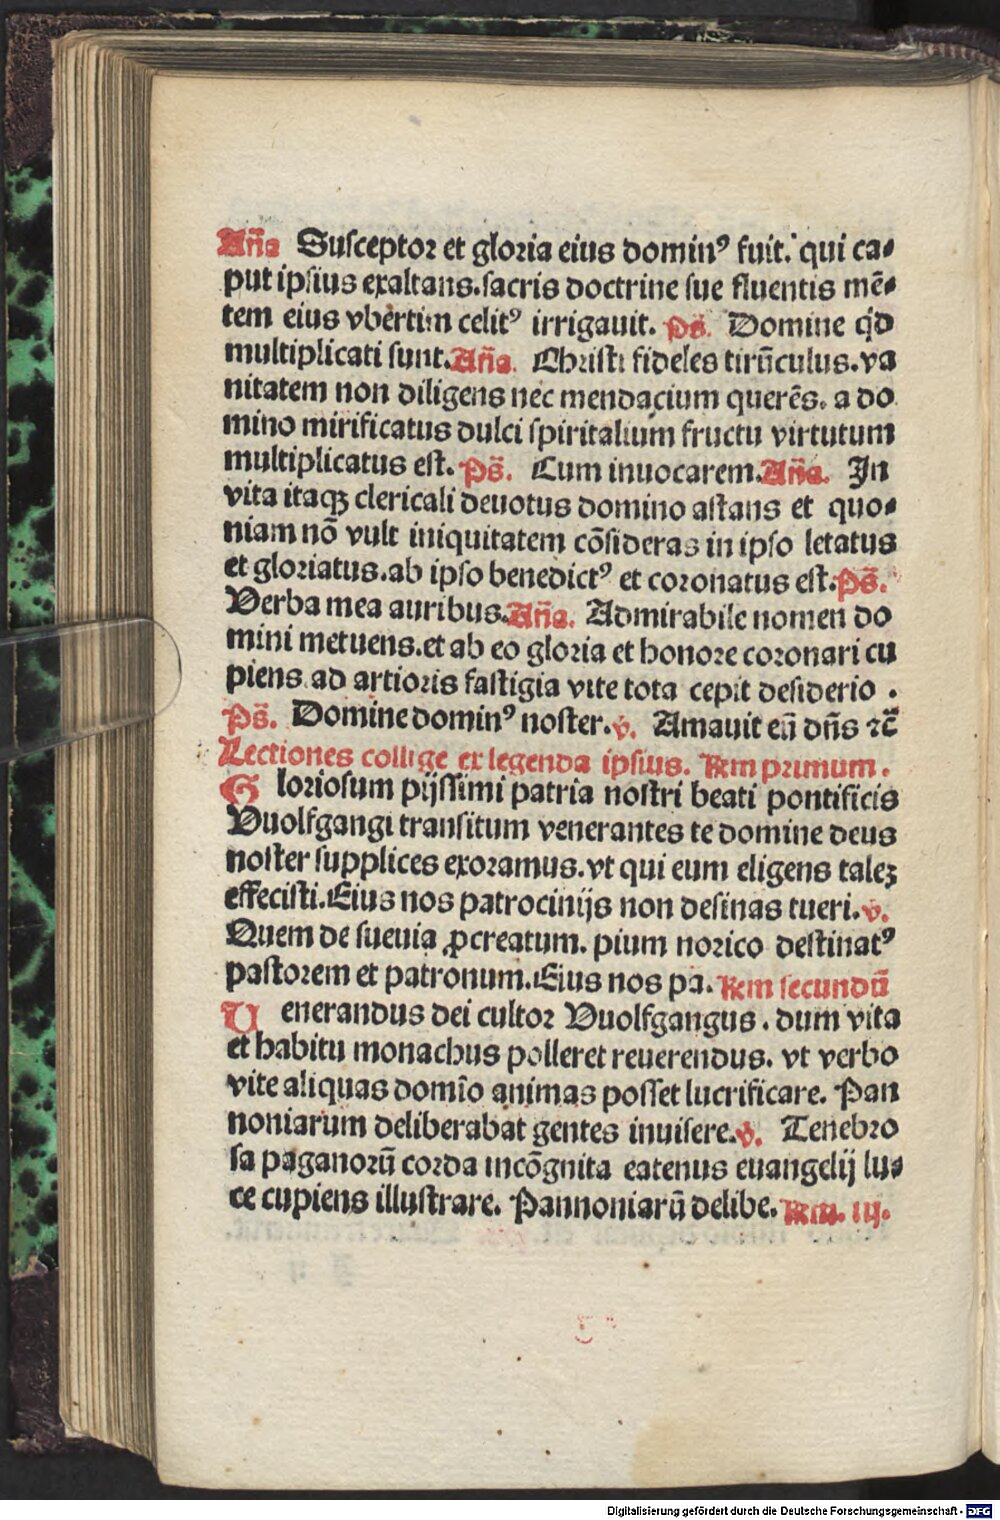 Aña Susceptor et gloria eius dominꝰ fuit. qui ca⸗
put ipsius exaltans. sacris doctrine sue fluentis mē⸗
tem eius vbertim celitꝰ irrigauit. Ps̄. Domine qd̕
multiplicati sunt. Aña. Christi fideles tirūculus. va
nitatem non diligens nec mendacium querēs. a do
mino mirificatus dulci spiritalium fructu virtutum
multiplicatus est. Ps̄. Cum inuocarem. Aña. In
vita itaqꝫ clericali deuotus domino astans et quo⸗
niam nō vult iniquitatem cōsideras in ipso letatus
et gloriatus. ab ipso benedictꝰ et coronatus est. Ps̄.
Verba mea auribus. Aña. Admirabile nomen do
mini metuens. et ab eo gloria et honore coronari cu
piens ad artioris fastigia vite tota cepit desiderio .
Ps̄. Domine dominꝰ noster. v̄. Amauit eū dn̄s ⁊c̄
Lectiones collige ex legenda ipsius. Rm̄ primum.
Gloriosum pijssimi patria nostri beati pontificis
Vuolfgangi transitum venerantes te domine deus
noster supplices exoramus. vt qui eum eligens taleꝫ
effecisti. Eius nos patrocinijs non desinas tueri. v̄.
Quem de sueuia ꝓcreatum. pium norico destinatꝰ
pastorem et patronum. Eius nos pa. Rm̄ secundū
Venerandus dei cultor Vuolfgangus. dum vita
et habitu monachus polleret reuerendus. vt verbo
vite aliquas domīo animas posset lucrificare. Pan
noniarum deliberabat gentes inuisere. v̄. Tenebro
sa paganorū corda incōgnita eatenus euangelij lu⸗
ce cupiens illustrare. Pannoniarū delibe. Rm̄. iij.
Digitalisierung gefördert durch die Deutsche Forschungsgemeinschaft - DFG